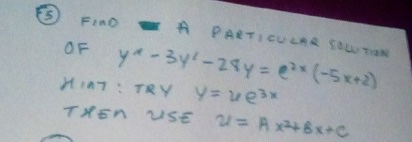 (5) FIND A PARTICULAR SOLUTION
OF y" - 3y' - 28y = e^{3x} (-5x+2)
HINT: TRY y = ue^{3x}
THEN USE u = Ax²+Bx+C